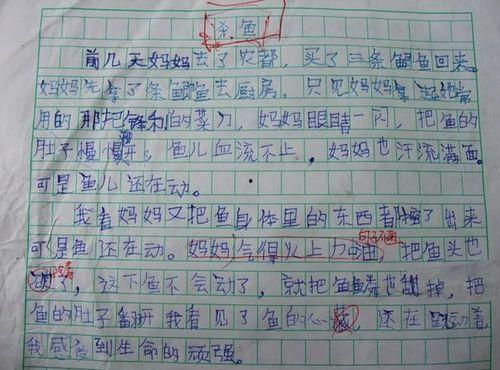 杀鱼
前几天妈妈去了农都，买了三条鲫鱼回来。
妈妈先拿了条鲫鱼去厨房。只见妈妈拿起她常
用的那把锋利的菜刀，妈妈眼睛一闪，把鱼的
肚子慢慢，鱼儿血流不止，妈妈也汗流满面。
可是鱼儿还在动。
我看妈妈又把鱼身体里的东西都了出来
可是鱼还在动。妈妈气得火上力 句子不通 把鱼头也
了，这下鱼不会动了，就把鱼鳞也掉，把
鱼的肚子翻开我看见了鱼的心，还在动着，
我感到生命的顽强。